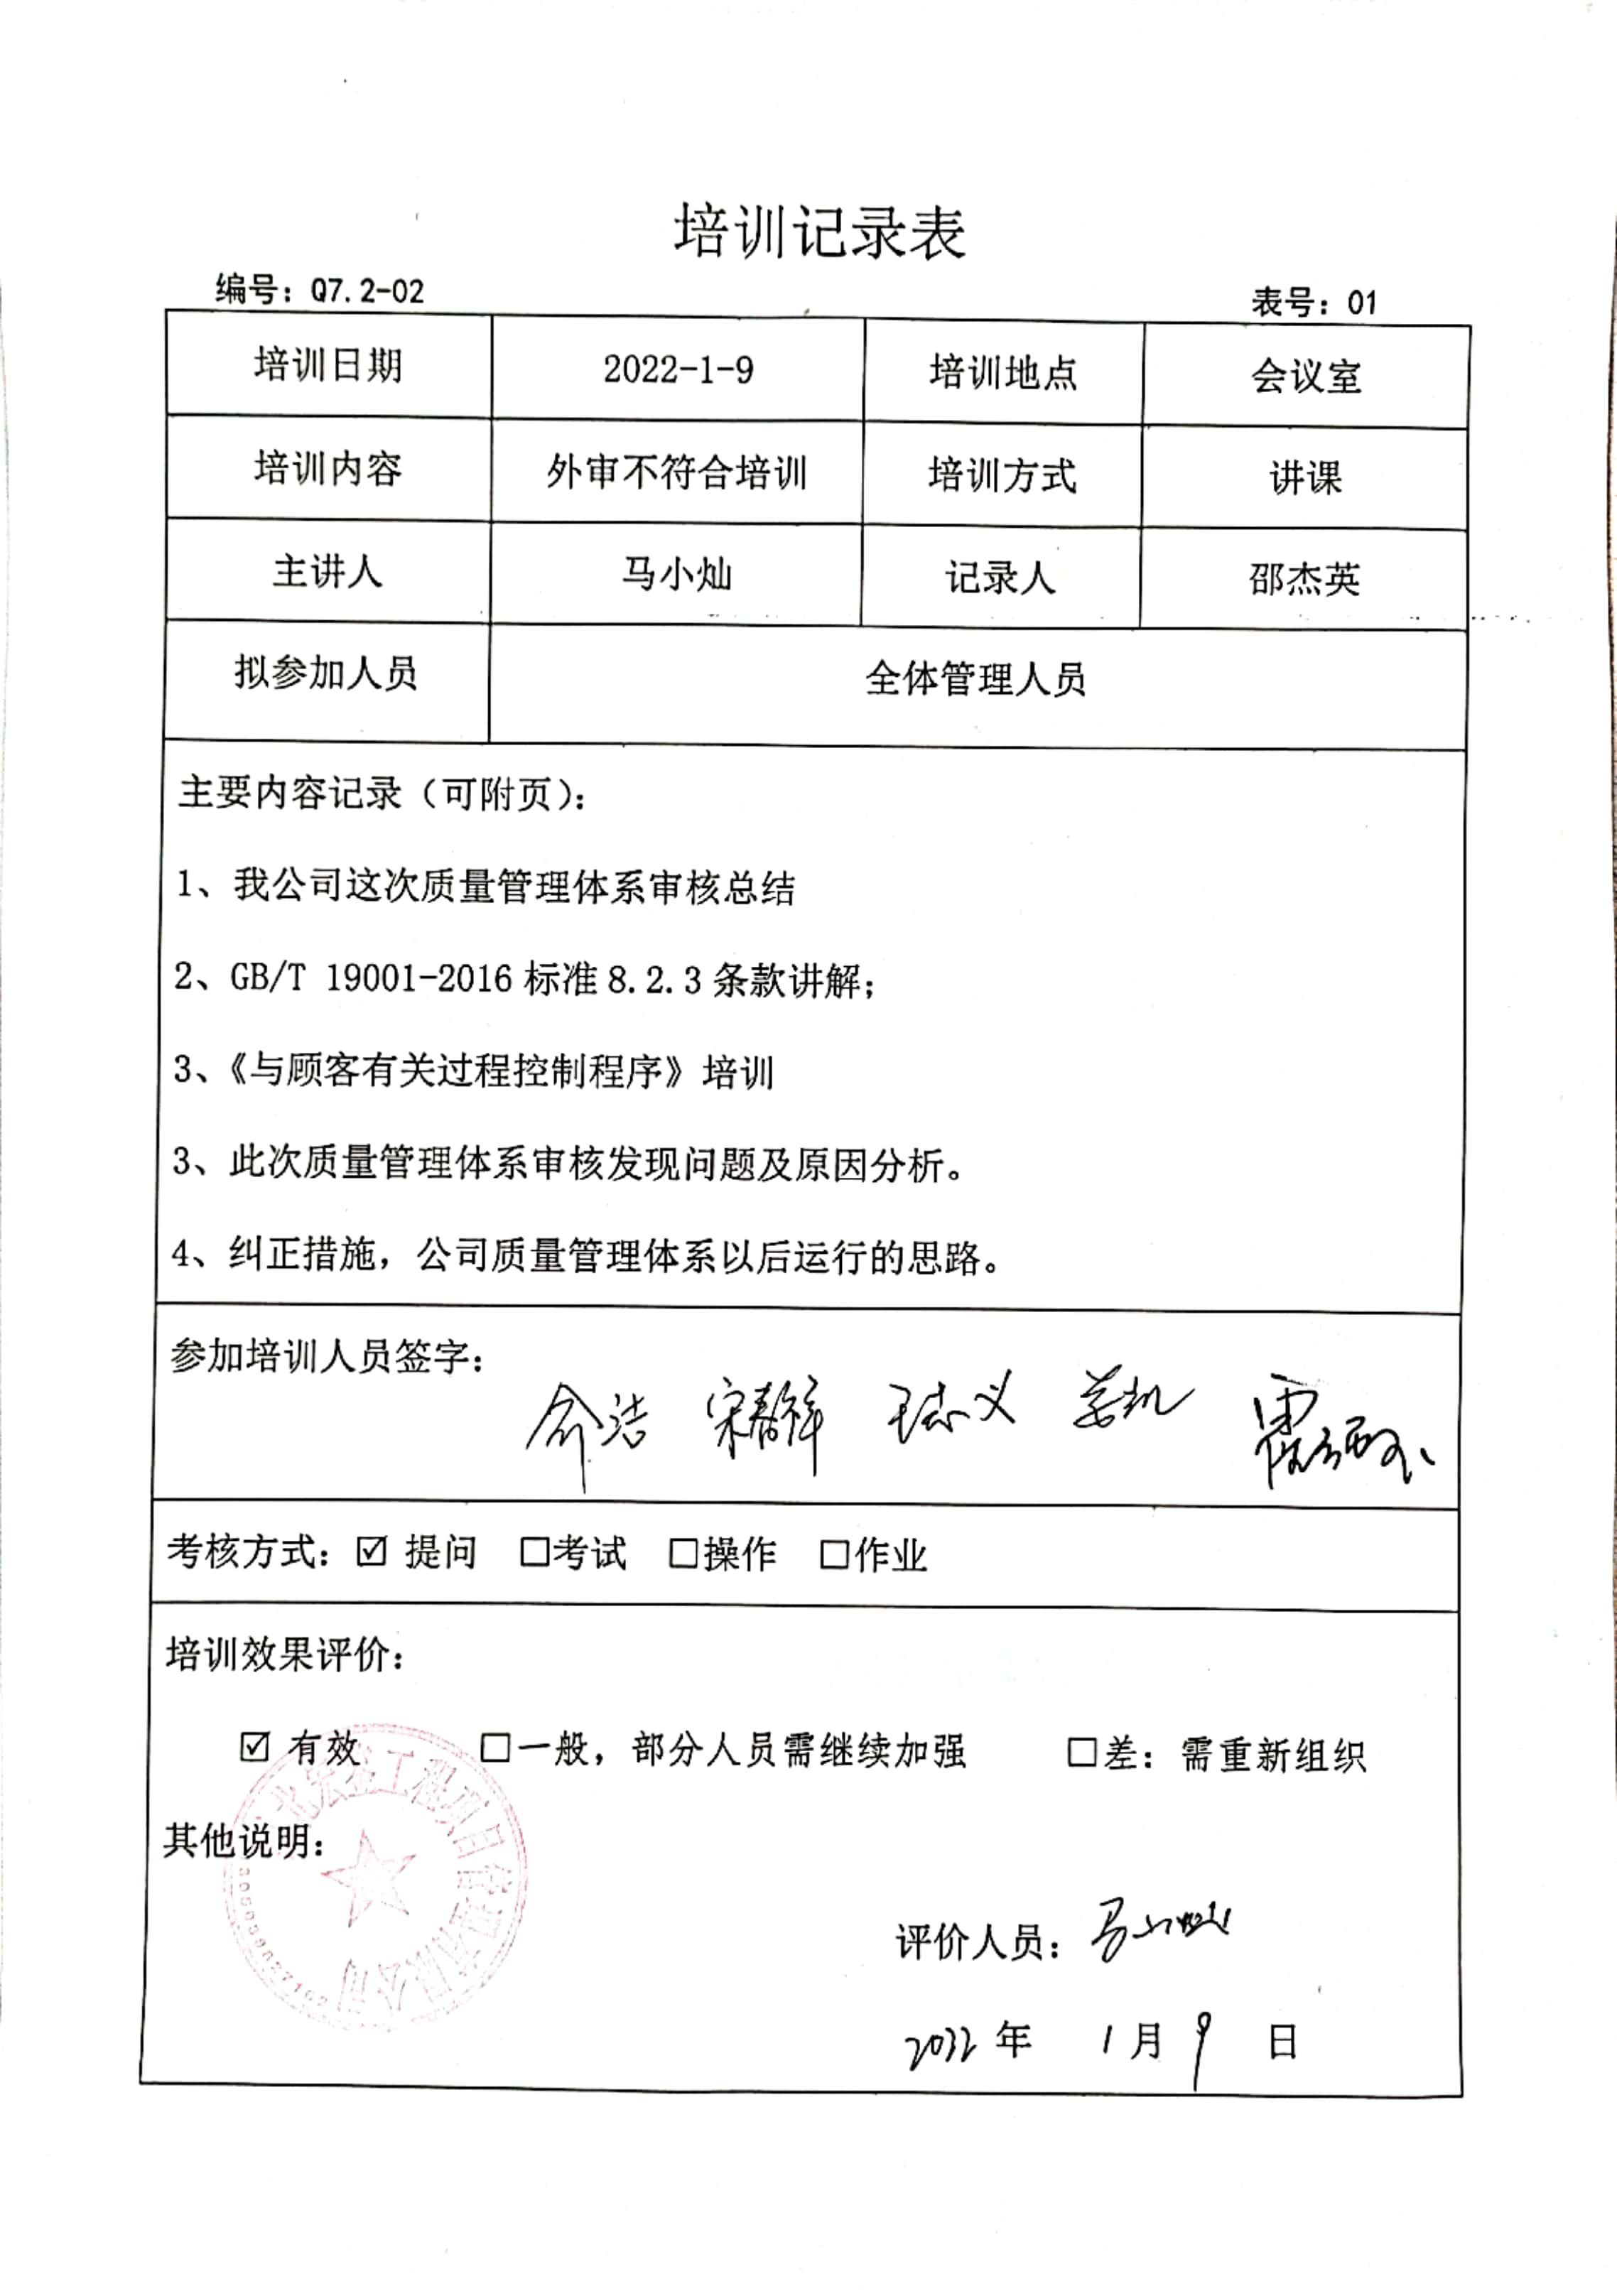 培训记录表
编号：Q7.2-02 表号：01
培训日期 2022-1-9 培训地点 会议室
培训内容 外审不符合培训 培训方式 讲课
主讲人 马小灿 记录人 邵杰英
拟参加人员 全体管理人员
主要内容记录（可附页）：
1、我公司这次质量管理体系审核总结
2、GB/T 19001-2016 标准 8.2.3 条款讲解；
3、《与顾客有关过程控制程序》培训
3、此次质量管理体系审核发现问题及原因分析。
4、纠正措施，公司质量管理体系以后运行的思路。
参加培训人员签字：
俞浩 宋春祥 王志义 姜凯
考核方式：☑ 提问 □考试 □操作 □作业
培训效果评价：
☑ 有效 □一般，部分人员需继续加强 □差：需重新组织
其他说明：
工程项目管理有限公司
评价人员：马小灿
2022 年 1 月 9 日